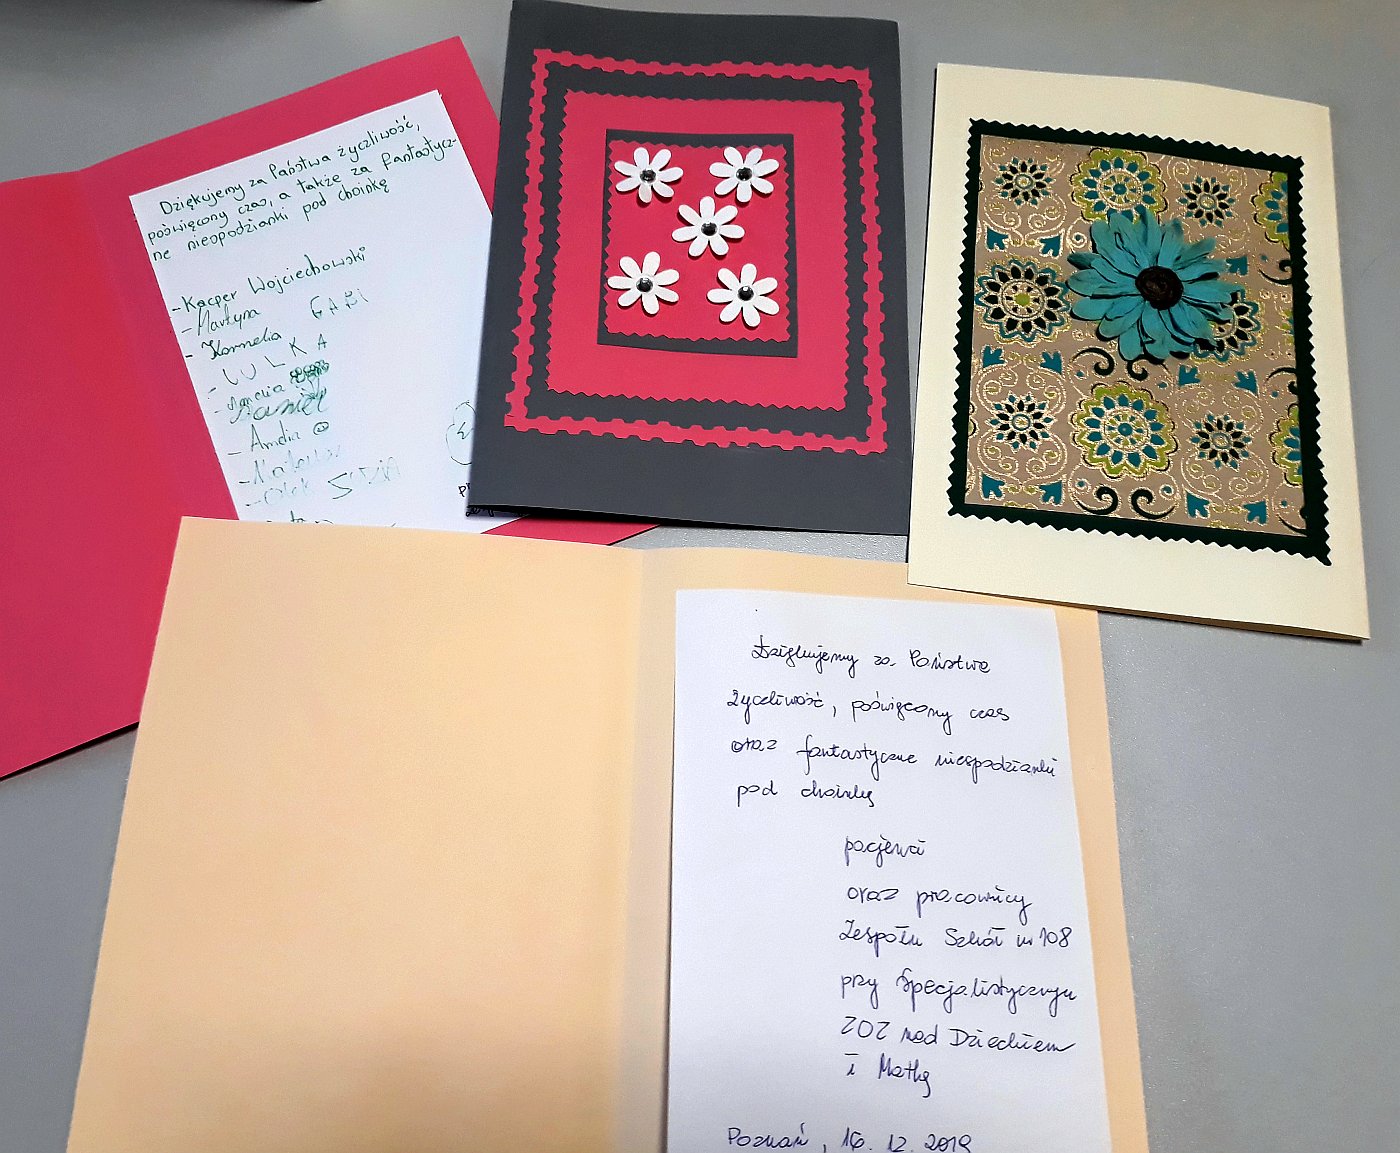 Dziękujemy za Państwa życzliwość,
poświęcony czas, a także za fantastycz-
ne niespodzianki pod choinkę
- Kacper Wojciechowski
- Martyna GABI
- Kornelia
- JULKA
Daniel
- Amelia
- Olek
Dziękujemy za Państwa
życzliwość, poświęcony czas
oraz fantastyczne niespodzianki
pod choinkę
pacjenci
oraz pracownicy
Zespołu Szkół nr 108
przy Specjalistycznym
ZOZ nad Dzieckiem
i Matką
Poznań, 16.12.2019